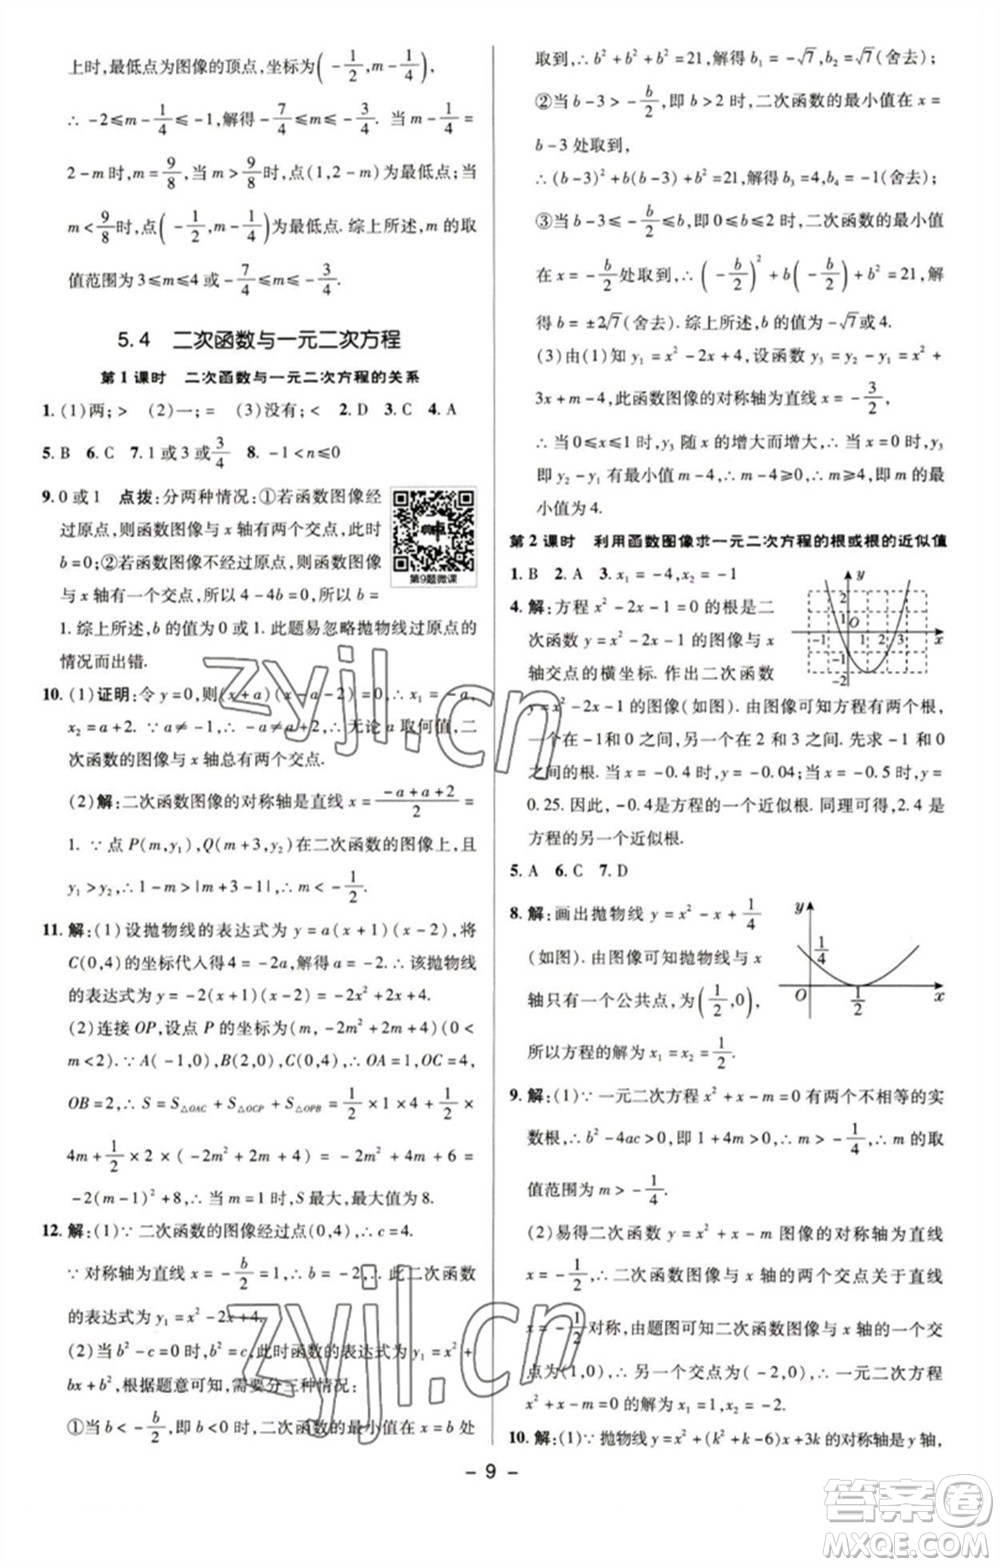 上时,最低点为图像的顶点,坐标为(-1/2,m-1/4),
∴-2≤m-1/4≤-1,解得-7/4≤m≤-3/4. 当m-1/4=
2-m时,m=9/8,当m>9/8时,点(1,2-m)为最低点;当
m<9/8时,点(-1/2,m-1/4)为最低点.综上所述,m的取
值范围为3≤m≤4或-7/4≤m≤-3/4.
5.4 二次函数与一元二次方程
第1课时 二次函数与一元二次方程的关系
1.(1)两;> (2)一;= (3)没有;< 2.D 3.C 4.A
5.B 6.C 7.1或3或3/4 8.-1<n≤0
9.0或1 点拨:分两种情况:①若函数图像经
过原点,则函数图像与x轴有两个交点,此时
b=0;②若函数图像不经过原点,则函数图像
与x轴有一个交点,所以4-4b=0,所以b=
第9题微课
1.综上所述,b的值为0或1.此题易忽略抛物线过原点的
情况而出错.
10.(1)证明:令y=0,则(x+a)(x-a-2)=0,∴x₁=-a,
x₂=a+2.∵a≠-1,∴-a≠a+2,∴无论a取何值,二
次函数的图像与x轴总有两个交点.
(2)解:二次函数图像的对称轴是直线x=(-a+a+2)/2=
1.∵点P(m,y₁),Q(m+3,y₂)在二次函数的图像上,且
y₁>y₂,∴1-m>|m+3-1|,∴m<-1/2.
11.解:(1)设抛物线的表达式为y=a(x+1)(x-2),将
C(0,4)的坐标代入得4=-2a,解得a=-2.∴该抛物线
的表达式为y=-2(x+1)(x-2)=-2x²+2x+4.
(2)连接OP,设点P的坐标为(m,-2m²+2m+4)(0<
m<2).∵A(-1,0),B(2,0),C(0,4),∴OA=1,OC=4,
OB=2,∴S=S△OAC+S△OCP+S△OPB=1/2×1×4+1/2×
4m+1/2×2×(-2m²+2m+4)=-2m²+4m+6=
-2(m-1)²+8,∴当m=1时,S最大,最大值为8.
12.解:(1)∵二次函数的图像经过点(0,4),∴c=4.
∵对称轴为直线x=-b/2=1,∴b=-2,∴此二次函数
的表达式为y₁=x²-2x+4.
(2)当b²-c=0时,b²=c,此时函数的表达式为y₁=x²+
bx+b²,根据题意可知,需要分三种情况:
①当b<-b/2,即b<0时,二次函数的最小值在x=b处
取到,∴b²+b²+b²=21,解得b₁=-√7,b₂=√7(舍去);
②当b-3>-b/2,即b>2时,二次函数的最小值在x=
b-3处取到,
∴(b-3)²+b(b-3)+b²=21,解得b₃=4,b₄=-1(舍去);
③当b-3≤-b/2≤b,即0≤b≤2时,二次函数的最小值
在x=-b/2处取到,∴(-b/2)²+b(-b/2)+b²=21,解
得b=±2√7(舍去).综上所述,b的值为-√7或4.
(3)由(1)知,二次函数y₁=x²-2x+4,设函数y₃=y₂-y₁=x²+
3x+m-4,此函数图像的对称轴为直线x=-3/2,
∴当0≤x≤1时,y₃随x的增大而增大,∴当x=0时,y₃
即y₂-y₁有最小值m-4,∴m-4≥0,∴m≥4,即m的最
小值为4.
第2课时 利用函数图像求一元二次方程的根或根的近似值
1.B 2.A 3.x₁=-4,x₂=-1
4.解:方程x²-2x-1=0的根是二
次函数y=x²-2x-1的图像与x
轴交点的横坐标.作出二次函数
y=x²-2x-1的图像(如图).由图像可知方程有两个根,
一个在-1和0之间,另一个在2和3之间.先求-1和0
之间的根.当x=-0.4时,y=-0.04;当x=-0.5时,y=
0.25.因此,-0.4是方程的一个近似根.同理可得,2.4是
方程的另一个近似根.
y
2
1
-1 O 1 2 3 x
-1
-2
5.A 6.C 7.D
8.解:画出抛物线y=x²-x+1/4
(如图).由图像可知抛物线与x
轴只有一个公共点,为(1/2,0),
所以方程的解为x₁=x₂=1/2.
y
1/4
O 1/2 x
9.解:(1)∵一元二次方程x²+x-m=0有两个不相等的实
数根,∴b²-4ac>0,即1+4m>0,∴m>-1/4,∴m的取
值范围为m>-1/4.
(2)易得二次函数y=x²+x-m图像的对称轴为直线
x=-1/2,∴二次函数图像与x轴的两个交点关于直线
x=-1/2对称,由题图可知二次函数图像与x轴的一个交
点为(1,0),∴另一个交点为(-2,0),∴一元二次方程
x²+x-m=0的解为x₁=1,x₂=-2.
10.解:(1)∵抛物线y=x²+(k²+k-6)x+3k的对称轴是y轴,
- 9 -
zyjl.cn
zyjl.cn
答案圈
MXQE.COM